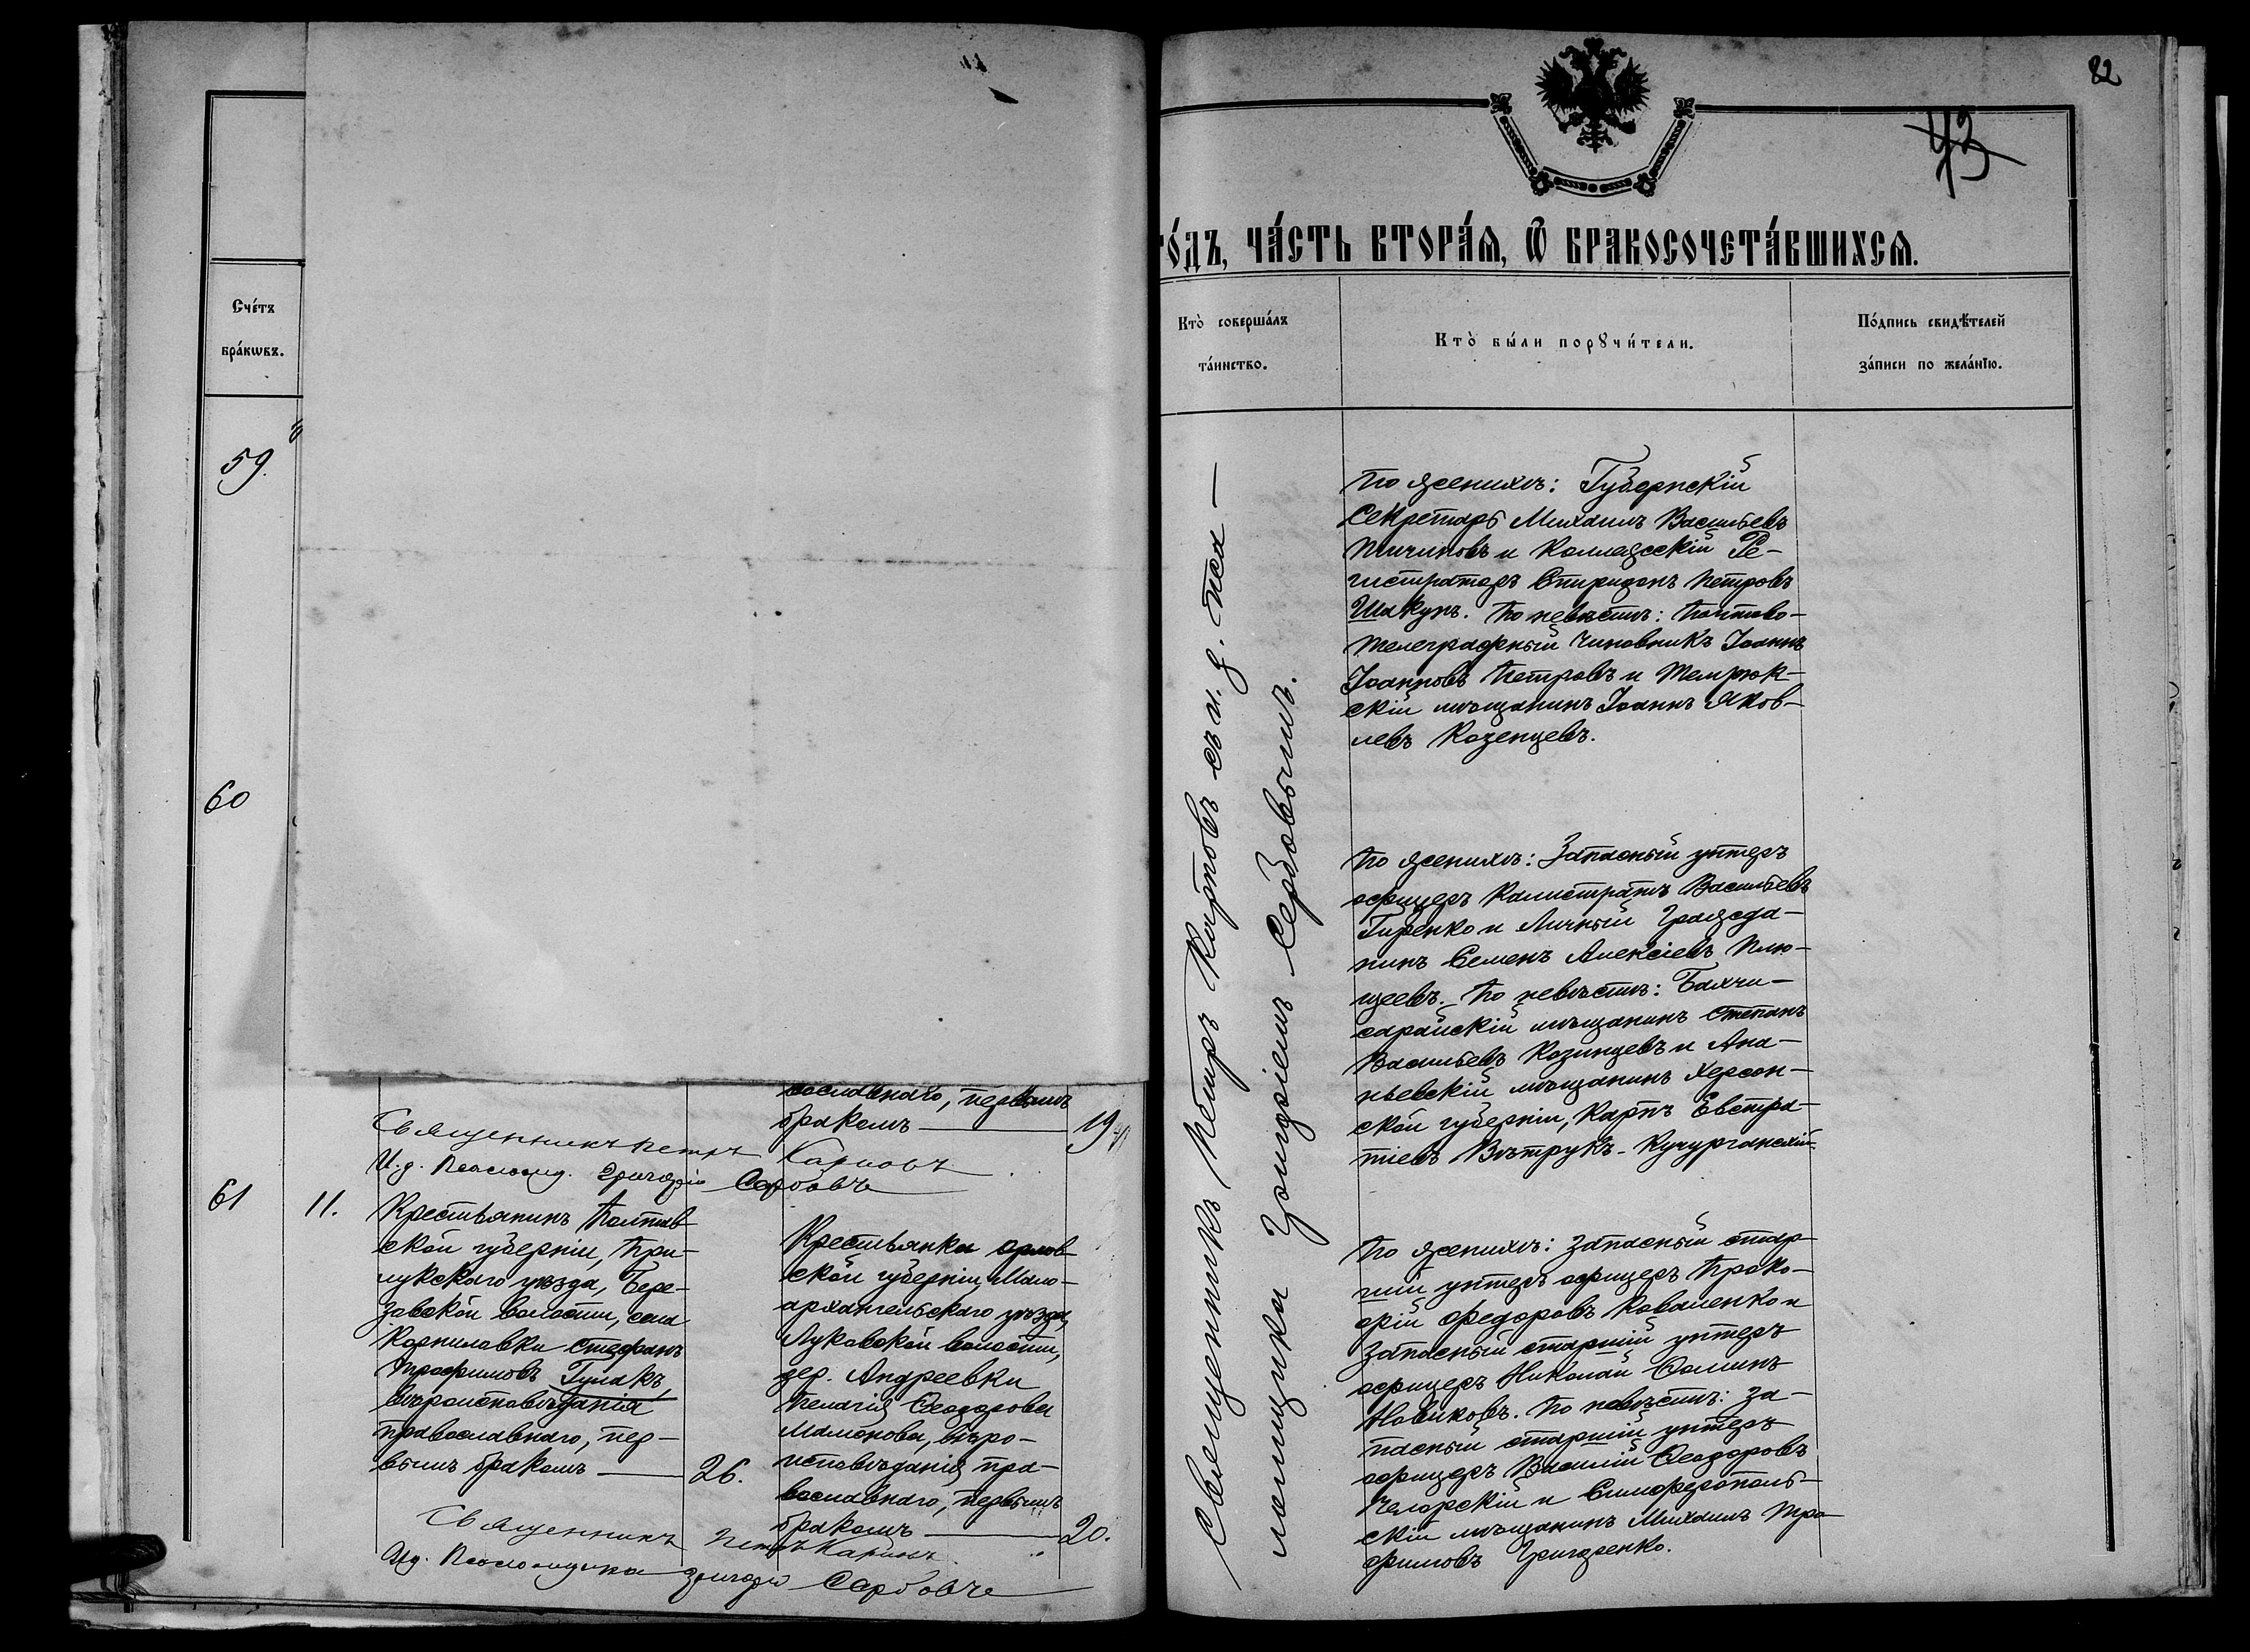 Сче́тъ
бра́кωвъ.
59.
60
вославнаго, первымъ
бракомъ — 19
Священникъ Петръ Карповъ
И. д. Псаломщ. Григорій Сербовъ
61
11.
Крестьянинъ Полтав-
ской губерніи, При-
лукскаго уѣзда, Бере-
зовской волости, села
Корниловки Стефанъ
Трофимовъ Гулакъ,
вѣроисповѣданія
православнаго, пер-
вымъ бракомъ — 26.
Крестьянка Орлов-
ской губерніи, Мало-
архангельскаго уѣзда,
Луковской волости,
дер. Андреевки
Пелагія Ѳеодорова
Мамонова, вѣро-
исповѣданія пра-
вославнаго, первымъ
бракомъ — 20.
Священникъ Петръ Карповъ
Ид. Псаломщика Григорій Сербовъ
82
43
го́дъ, ча́сть втора́ѧ, ѽ бракосочета́вшихсѧ.
Кто̀ соверша́лъ
та́инство.
Кто̀ бы́ли порꙋчи́тели.
По́дпись свидѣ́телей
за́писи по жела́нїю.
Священникъ Петръ Карповъ съ и. д. пса-
ломщика Григоріемъ Сербовымъ.
По женихѣ: Губернскій
Секретарь Михаилъ Васильевъ
Птичниковъ и Коллежскій Ре-
гистраторъ Спиридонъ Петровъ
Шакунъ. По невѣстѣ: Почтово-
телеграфный чиновникъ Іоаннъ
Іоанновъ Петровъ и Темрюк-
скій мѣщанинъ Іоаннъ Яков-
левъ Козенцевъ.
По женихѣ: Запасный унтеръ
офицеръ Калистратъ Васильевъ
Гиренко и Личный Гражда-
нинъ Семенъ Алексіевъ Плю-
щевъ. По невѣстѣ: Бахчи-
сарайскій мѣщанинъ Степанъ
Васильевъ Козинцевъ и Ана-
ньевскій мѣщанинъ Херсон-
ской губерніи, Карпъ Евстра-
тіевъ Вѣтрукъ-Кучурганскій.
По женихѣ: Запасный стар-
шій унтеръ офицеръ Проко-
фій Федоровъ Коваленко и
Запасный старшій унтеръ
офицеръ Николай Ѳоминъ
Новиковъ. По невѣстѣ: За-
пасный старшій унтеръ
офицеръ Василій Ѳеодоровъ
и Симферополь-
скій мѣщанинъ Михаилъ Тро-
фимовъ Григоренко.